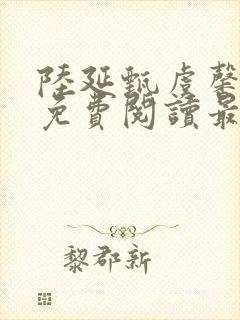 陸延甄虞馨
免費閱讀最
黎郡新